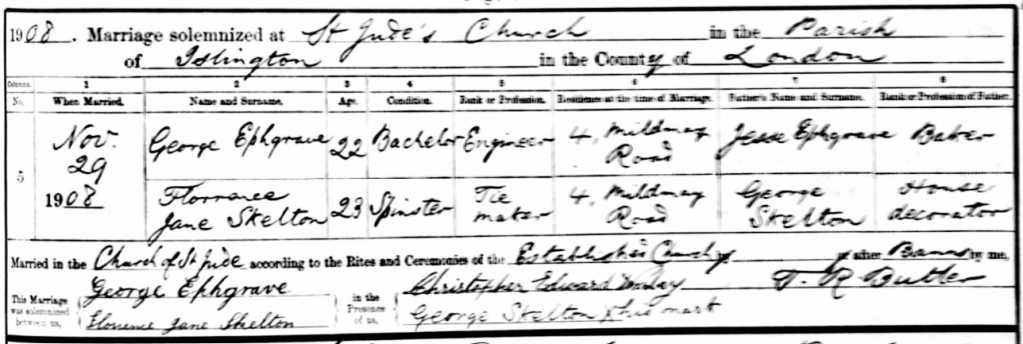 1908. Marriage solemnized at St Jude's Church in the Parish
of Islington in the County of London
Columns. 1 2 3 4 5 6 7 8
No. When Married. Name and Surname. Age. Condition. Rank or Profession. Residence at the time of Marriage. Father's Name and Surname. Rank or Profession of Father.
5 Nov. 29 1908 George Ephgrave 22 Bachelor Engineer 4, Mildmay Road Jesse Ephgrave Baker
Florrance Jane Skelton 23 Spinster Tie maker 4, Mildmay Road George Skelton House decorator
Married in the Church of St Jude according to the Rites and Ceremonies of the Established Church after Banns by me,
This Marriage was solemnized between us, George Ephgrave in the Presence of us, Christopher Edward J. R. Butler
Florence Jane Skelton George Skelton X his mark